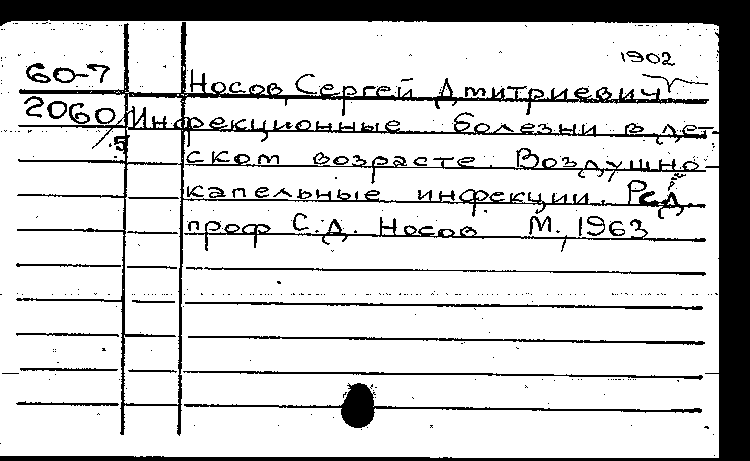 1902
60-7 Носов, Сергей Дмитриевич
2060/5 Инфекционные болезни в дет-
ском возрасте. Воздушно-
капельные инфекции. Ред.
проф С.Д. Носов М., 1963